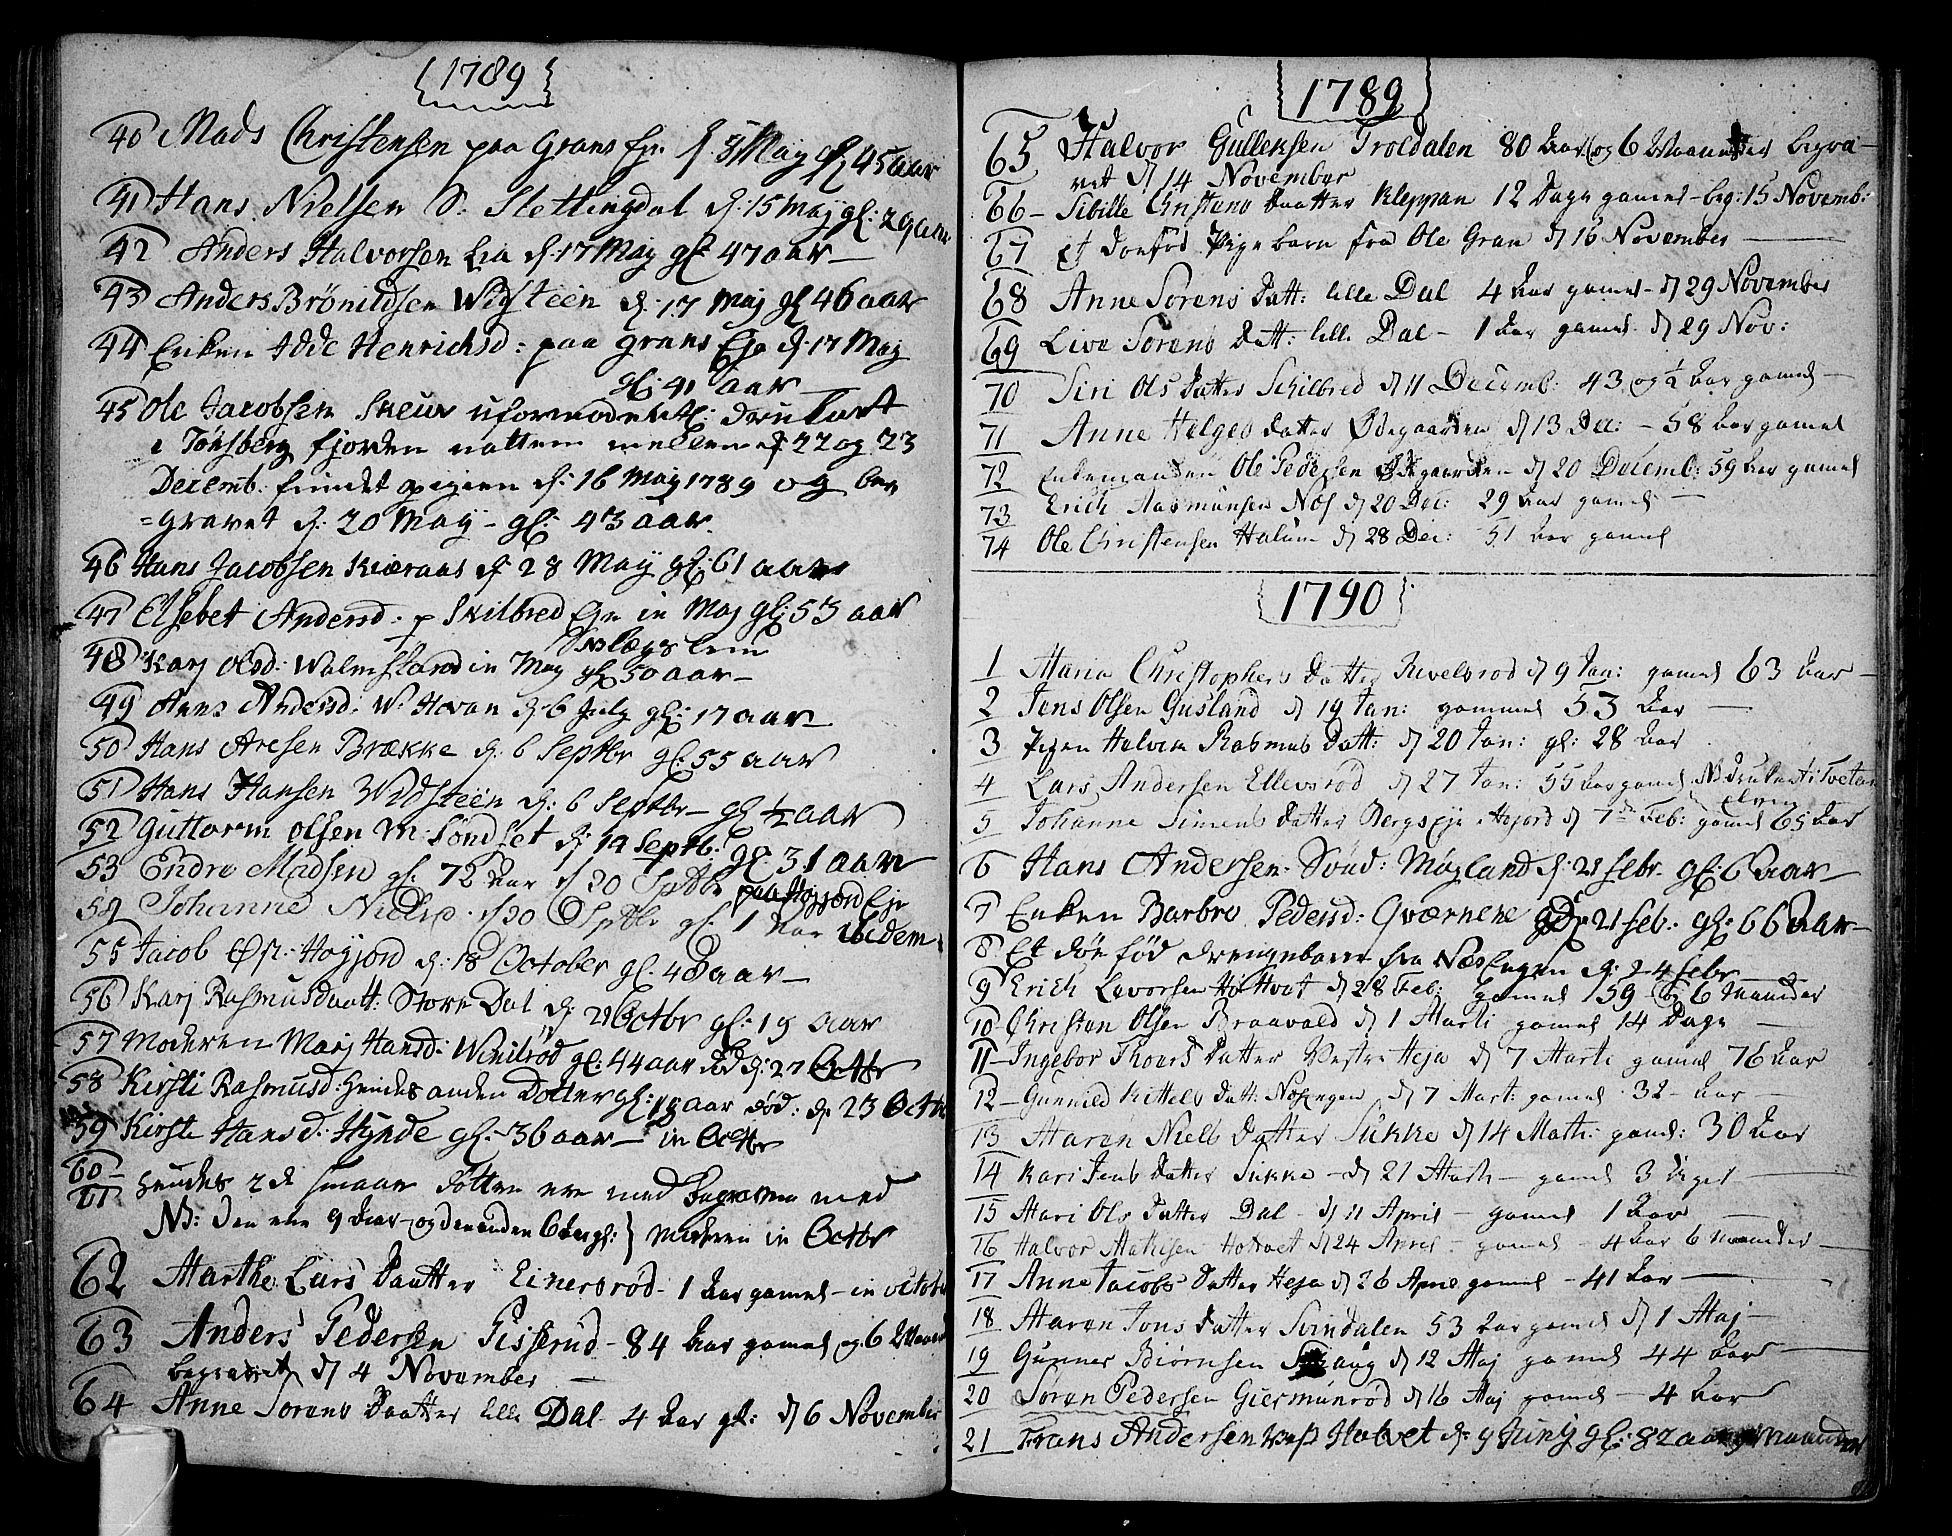 1789
40 Mads Christensen paa Grans Eje d. 3 Maij gl. 45 aar
41 Hans Nielsen S: Slettingdal d. 15 Maj gl: 29 aar
42 Anders Halvorsen Lia d. 17 Maij gl. 47 aar
43 Anders Brönildsen Widsteen d. 17 Maj gl 46 aar
44 Enken Idde Henrichsd: paa Grans Eje d. 17 Maj
gl: 41 aar
45 Ole Jacobsen Skeur uformodentl: druknet
i Tönsberg fjorden natten mellem d. 22 og 23
Decemb: fundet igien d. 16 Maij 1789 og be
=gravet d. 20 Maij - gl. 43 aar.
46 Hans Jacobsen Kiæraas d. 28 Maij gl. 61 aar
47 Elsebet Andersd: p Skilbred Eje in Maj gl: 53 aar
48 Karj Olsd: in Maij gl 50 aar
49 Hans Andersd: W. Hovan d. 6 Julij gl: 17 aar
50 Hans Aresen Brække d. 6 Septbr gl. 55 aar
51 Hans Hansen Widsteen d: 6 Septbr gl ½ aar
52 Guttorm Olsen M: Söndset d. 14 Septb: gl. 31 aar
53 Endre Madsen gl. 72 Aar d 20 Sptbr paa Högjord Eje
54 Johanne Nielsd. d 20 Sptbr gl. 1 Aar ibidem
55 Jacob Höyjord d. 18 October gl. 40 aar
56 Karj Rasmusdaatt: Store Dal d. 21 Octbr gl: 19 aar
57 Moderen Marj Hansd: Winilröd gl: 44 aar död d: 27 Octbr
58 Kirsti Rasmusd: hendes anden Dotter gl: 18 aar död: d. 23 Octb
59 Kirsti Hansd. Hynde gl. 36 aar in Octbr
60
61 hendes 2de smaae Döttre ere med med
NB: Den ene 9 Aar og den anden 6 Aar gl: } Moderen in Octbr
62 Marthe Lars Daatter Einersröd 1 Aar gamel - in octob
63 Anders Pedersen Pisserud - 84 Aar gamel og 6 Maan
begravet d 4 November
64 Anne Sorens Daatter lille Dal 4 Aar gl: d 6 November
1789
65 Halvor Gulleksen Troldalen 80 Aar og 6 Maaneder begra-
vet d 14 November
66 - Sibille Christans Daatter Kleppan 12 Dage gamel - beg: 15 Novemb:
67 et dödföd Pige barn fra Ole Gran d 16 November
68 Anne Sorens Datt: lille Dal 4 Aar gamel - d 29 November
69 Live Sorens Datt: lille Dal - 1 Aar gamel d 29 Nov:
70 Siri Ols Datter Schilbred d 11 Decemb: 43 og ½ Aar gamel
71 Anne Helges Datter Ødegaarden d 13 Dec: - 58 Aar gamel
72 Enkemanden Ole Pedersen Ødegaarden d 20 Decemb: 59 Aar gamel
73 Erich Aasmunsen Næs d 20 Dec: 29 Aar gamel
74 Ole Christensen Halum d 28 Dec: 51 Aar gamel
1790
1 Maria Christophers Datter Revelsrod d 9 Jan: gamel 63 Aar
2 Jens Olsen Gusland d 19 Jan: gammel 53 Aar
3 Pigen Halvor Rasmus Datt: d 20 Jan: gl: 28 Aar
4 Lars Andersen Ellevsröd d 27 Jan: 55 Aar gamel NB druknet i Tvetan
elven
5 Johanne Simens Datter Bergs Eje i Högjord d 7de Feb: gamel 65 Aar
6 Hans Andersen Svud: Möyland d. 21 febr. gl: 6 aar
7 Enken Barbro Pedersd: Qværnene d. 21 feb: gl: 66 Aar
8 Et döe föd drengebarn fra Næs Engen d. 24 febr
9 Erich Levorsen Hötvet d 28 Feb: gamel 59 og 6 Maaneder
10 Christan Olsen Braavold d 1 Marti gamel 14 Dage
11 - Ingebor Thoers Datter Vestre Heja d 7 Marti gamel 76 Aar
12 - Gunnild Kittels Datt: Næs engen d 7 Mart: gamel 32 Aar
13 Maren Niels Datter Sukke d 14 Mart: gamel: 30 Aar
14 Kari Jens Datter Sukke - d 21 Marti - gamel 3 Uger
15 Mari Ols Datter Dal - d 11 April - gamel 1 Aar
16 Halvor Mathisen Hotvet d 24 April - gamel - 4 Aar 6 maaneder
17 Anne Jacobs Datter Heja d 26 April gamel - 41 Aar
18 Maren Jons Datter Svindalen 53 Aar gamel d 1 Maj
19 Gunner Biörnsen d 12 Maj gamel 44 Aar
20 Sören Pedersen Giermunröd d 16 Maj gamel - 4 Aar
21 Frans Andersen Holvet d. 9 Junij gl: 82 aar maaneder